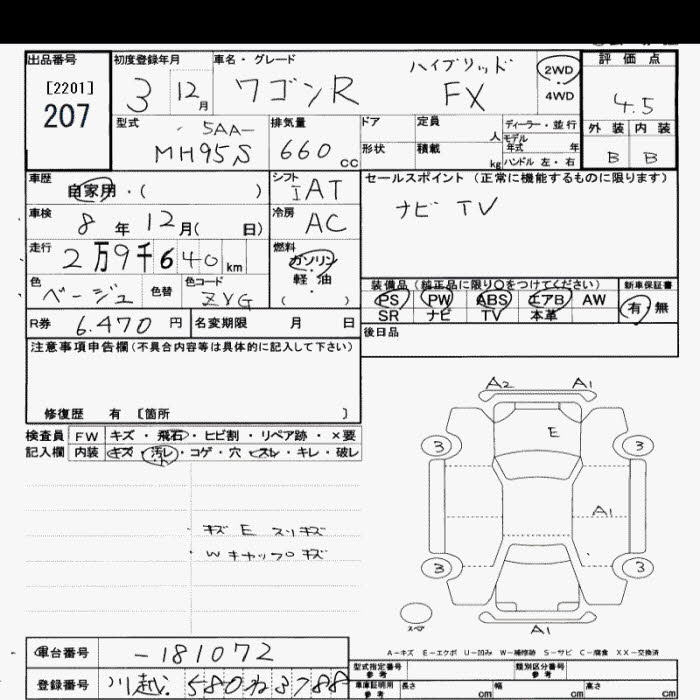 出品番号
[2201]
207
初度登録年月
3 12月
車名・グレード
ワゴンR ハイブリッド FX
2WD
4WD
評価点
4.5
外装 内装
B B
型式
5AA-
MH95S
排気量
660 cc
ドア
形状
定員
人
積載
kg
ディーラー・並行
モデル年式 年
ハンドル 左・右
車歴
自家用・( )
車検
8 年 12 月( 日)
走行
2万9千640 km
色
ベージュ
色替
色コード
ZVG
シフト
IAT
冷房
AC
燃料
ガソリン
軽・油
( )
セールスポイント (正常に機能するものに限ります)
ナビ TV
装備品 (純正品に限り○をつけてください)
PS PW ABS エアB AW
SR ナビ TV 本革
新車保証書
有 無
R券 6.470 円
名変期限 月 日
後日品
注意事項申告欄(不具合内容等は具体的に記入して下さい)
修復歴 有 〔箇所 〕
検査員 FW キズ・飛石・ヒビ割・リペア跡・×要
記入欄 内装 キズ・汚レ・コゲ・穴・スレ・キレ・破レ
キズ E スリキズ
W キャップキズ
A2 A1
E
3 3
A1
3 3
スペア
A1
A-キズ E-エクボ U-凹み W-補修跡 S-サビ C-腐食 XX-交換済
車台番号 -181072
登録番号 川越 580ね3788
型式指定番号 参考
類別区分番号 参考
車庫証明用 参考
長さ cm
幅 cm
高さ cm